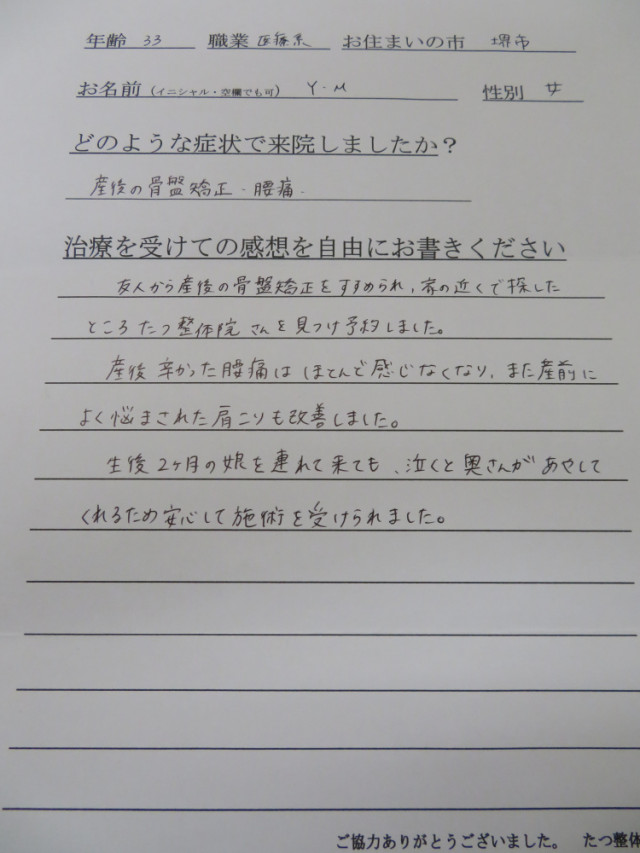 年齢 33 職業 医療系 お住まいの市 堺市
お名前(イニシャル・空欄でも可) Y.M 性別 女
どのような症状で来院しましたか?
産後の骨盤矯正・腰痛.
治療を受けての感想を自由にお書きください
友人から産後の骨盤矯正をすすめられ、家の近くで探した
ところたつ整体院さんを見つけ予約しました。
産後辛かった腰痛はほとんで感じなくなり、また産前に
よく悩まされた肩こりも改善しました。
生後2ヶ月の娘を連れて来ても、泣くと奥さんがあやして
くれるため安心して施術を受けられました。
ご協力ありがとうございました。 たつ整体